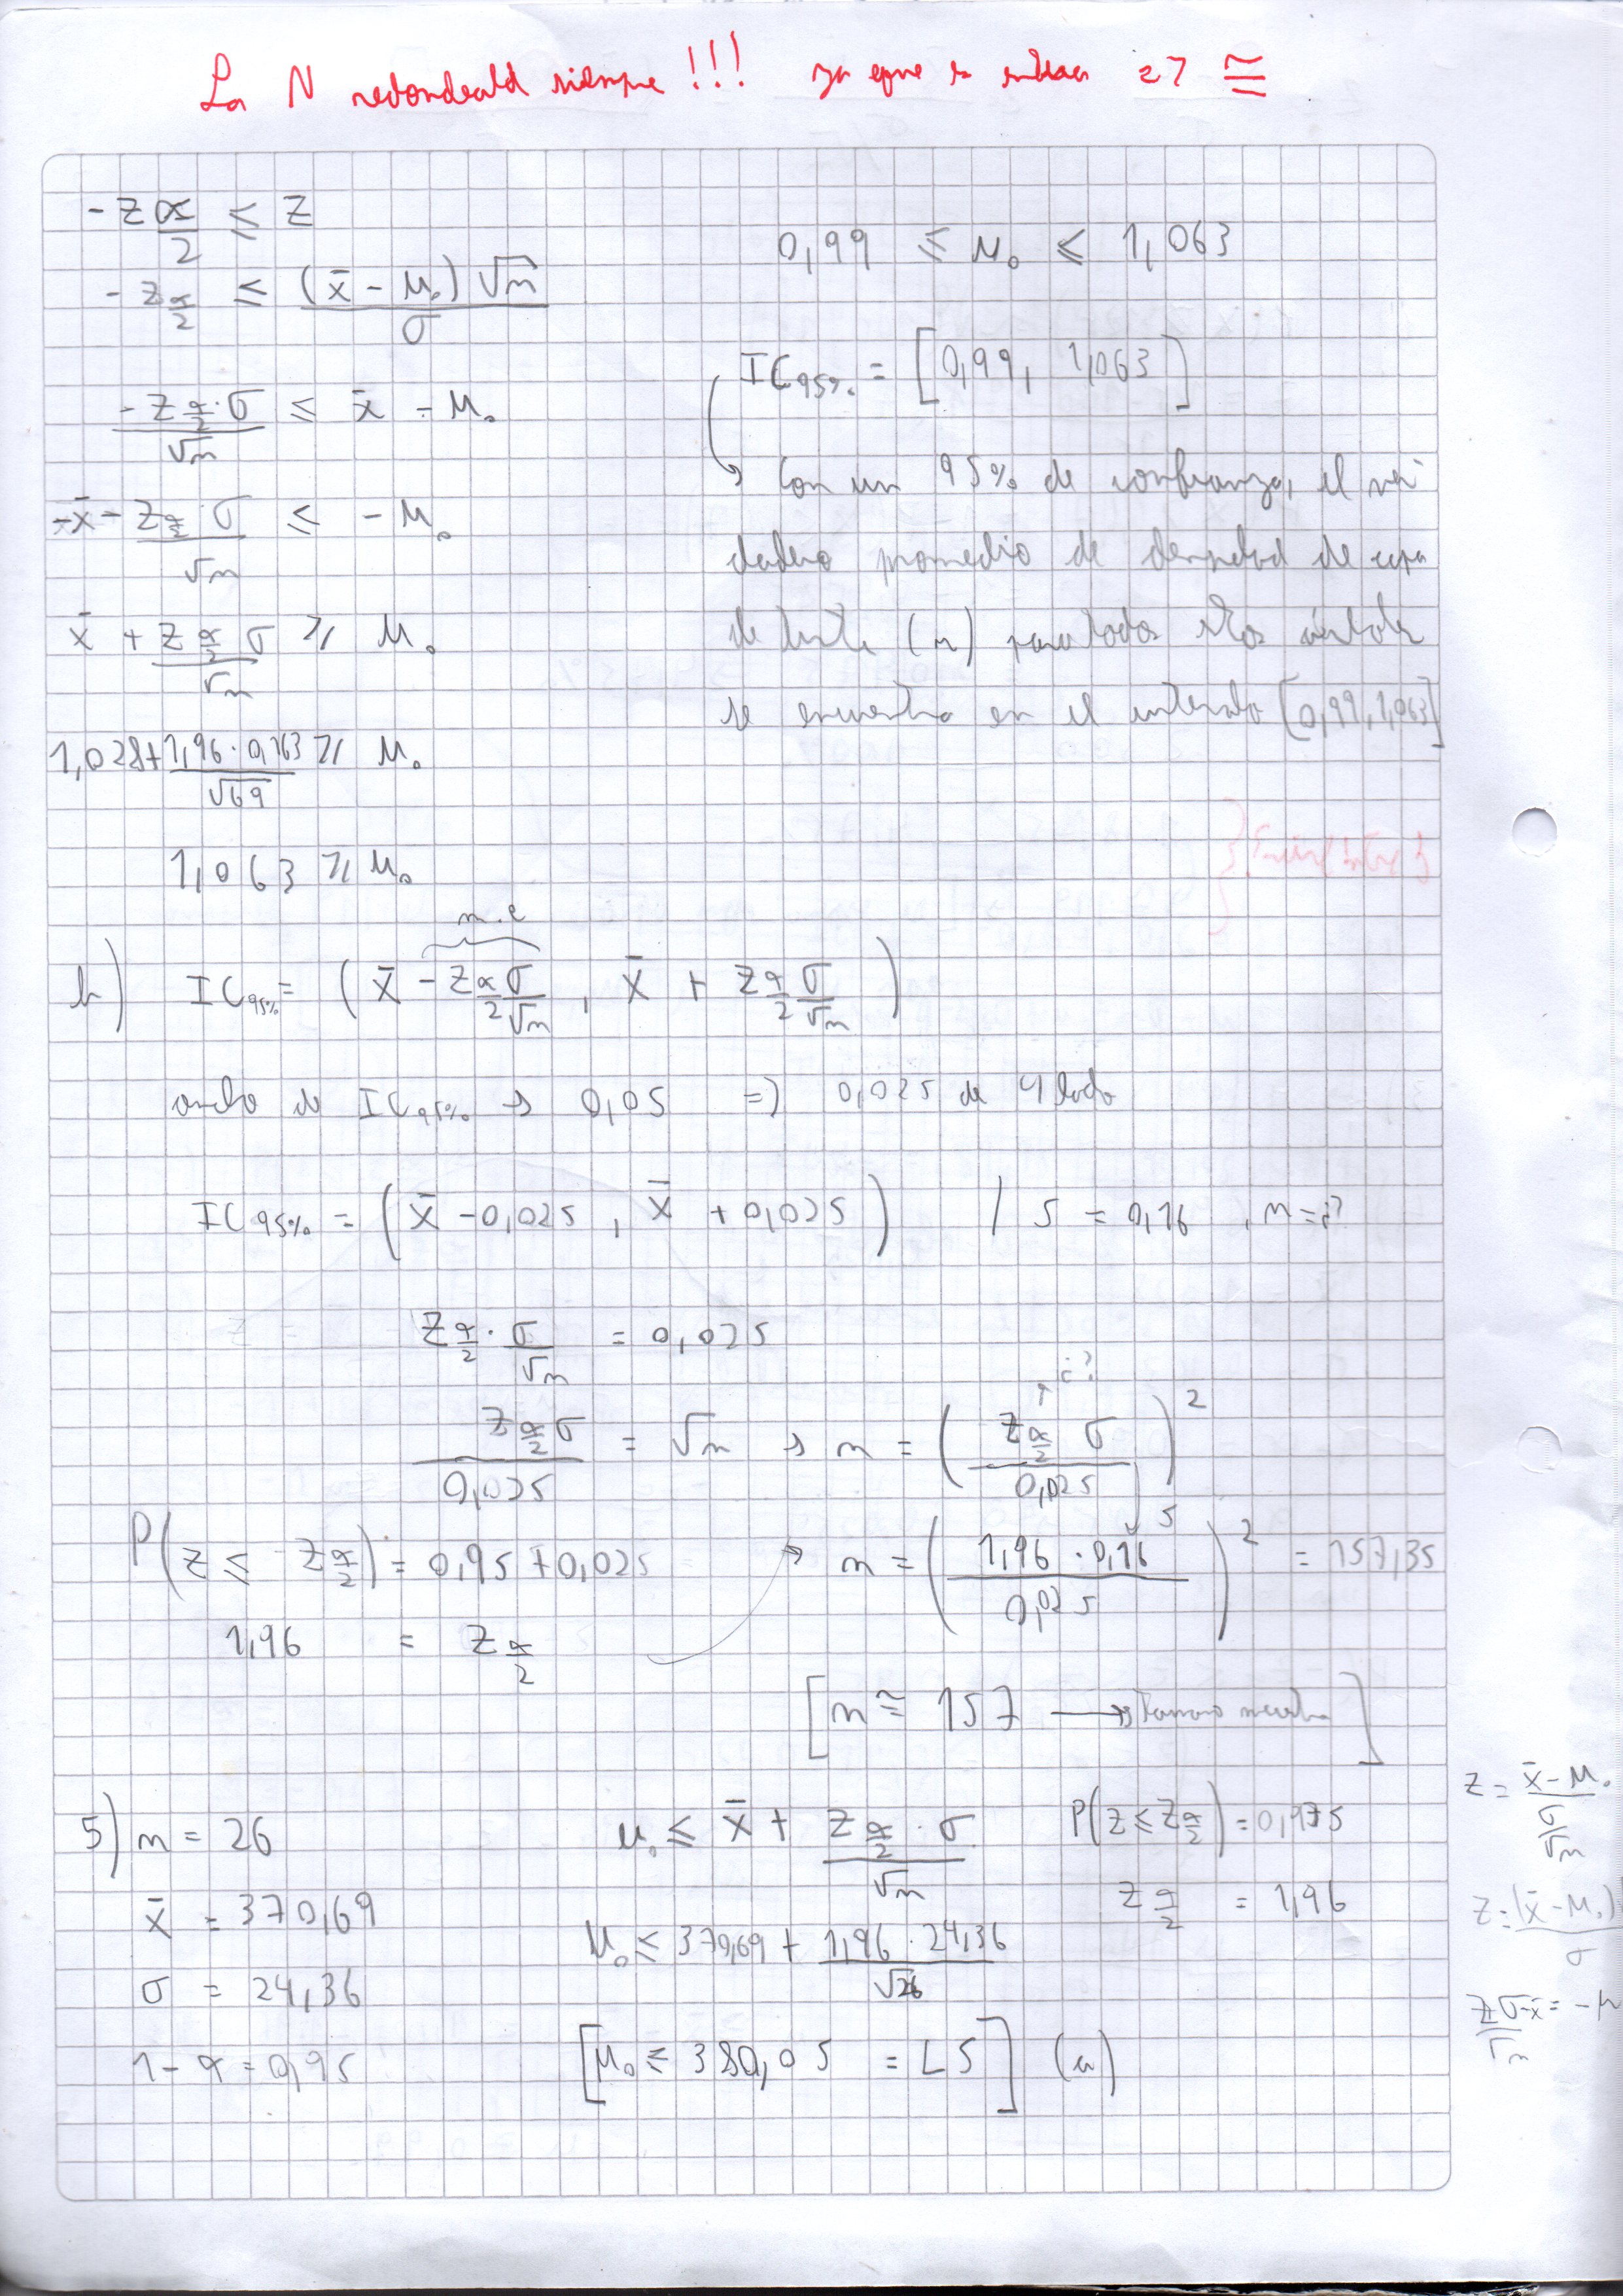 La N redondeald siempre!!! ya que se enteran ¿? ≅
-Z α/2 ≤ Z
-Z α/2 ≤ (x̄ - M₀) √n / σ
-Z α/2 · σ / √n ≤ x̄ - M₀
-x̄ - Z α/2 · σ / √n ≤ -M₀
x̄ + Z α/2 σ / √n ≥ M₀
1,028 + 1,96 · 0,163 / √69 ≥ M₀
1,063 ≥ M₀
0,99 ≤ M₀ ≤ 1,063
IC95% = [0,99, 1,063]
Con un 95% de confianza, el ver
dadero promedio de densidad de capa
de (n) para todos estos árboles
se encuentra en el intervalo [0,99, 1,063]
b) IC95% = (x̄ - Z α/2 σ/√n , x̄ + Z α/2 σ/√n)
m.e
ancho de IC95% → 0,05 => 0,025 de c/ lado
IC95% = (x̄ - 0,025 , x̄ + 0,025) / S = 0,16 , n = ¿?
Z α/2 · σ/√n = 0,025
Z α/2 σ / 0,025 = √n → n = (Z α/2 σ / 0,025)²
¿?
S
P(Z ≤ Z α/2) = 0,95 + 0,025
n = (1,96 · 0,16 / 0,025)² = 157,35
1,96 = Z α/2
[n ≅ 157 → Tamaño muestra]
5) n = 26
x̄ = 370,69
σ = 24,36
1 - α = 0,95
M₀ ≤ x̄ + Z α/2 · σ / √n
M₀ ≤ 370,69 + 1,96 · 24,36 / √26
[M₀ ≤ 380,05 = LS] (a)
P(Z ≤ Z α/2) = 0,975
Z α/2 = 1,96
Z = x̄ - M₀ / σ/√n
Z = (x̄ - M₀) / σ
Zσ/√n - x̄ = -M